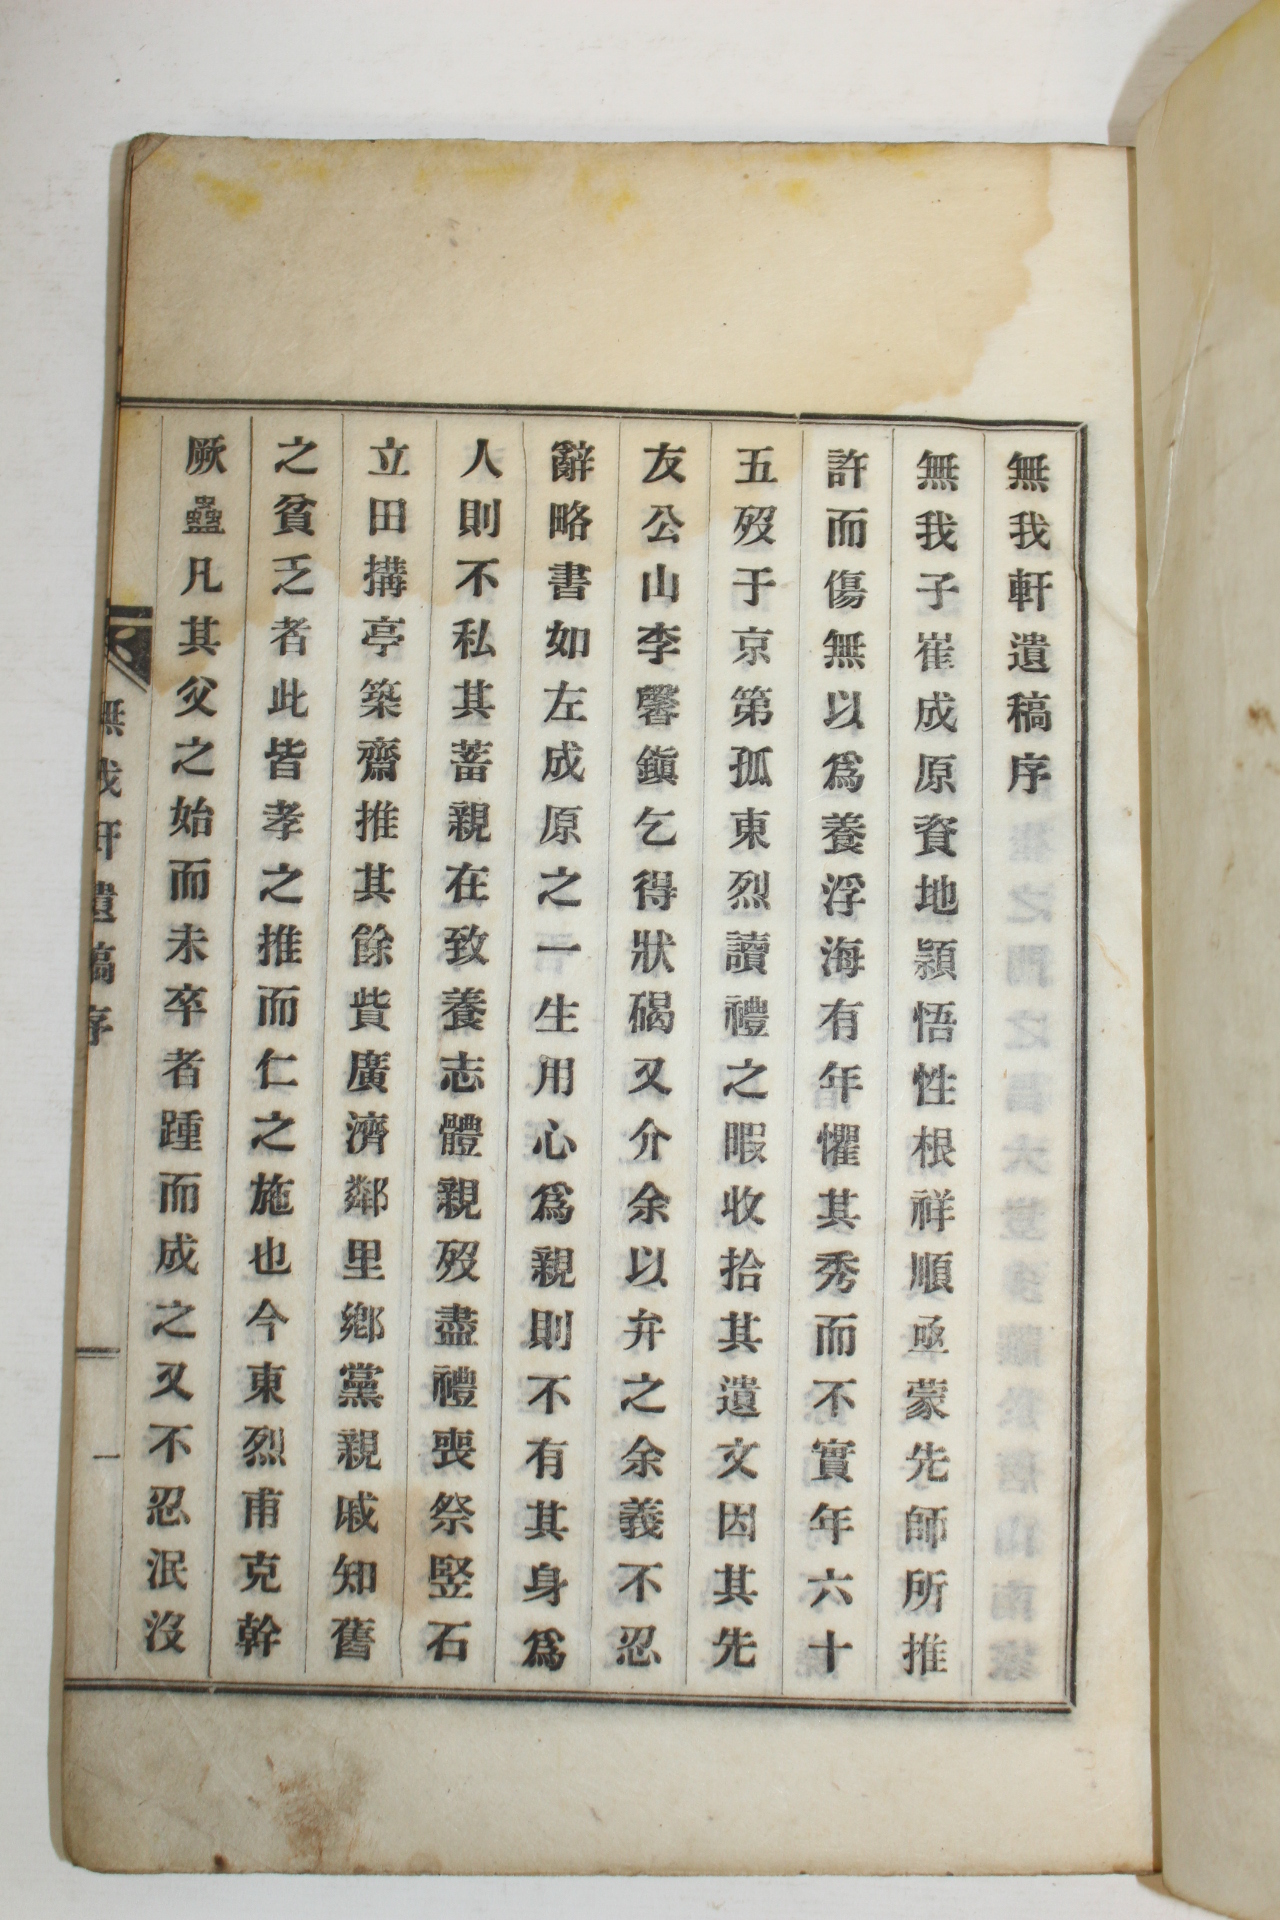 無我軒遺稿序
無我子崔成原資地潁悟性根祥順亟蒙先師所推
許而傷無以爲養浮海有年懼其秀而不實年六十
五歿于京第孤東烈讀禮之暇收拾其遺文因其先
友公山李馨鎭乞得狀碣又介余以弁之余義不忍
辭略書如左成原之一生用心爲親則不有其身爲
人則不私其蓄親在致養志體親歿盡禮喪祭竪石
立田搆亭築齋推其餘貲廣濟鄰里鄉黨親戚知舊
之貧乏者此皆孝之推而仁之施也今東烈甫克幹
厥蠱凡其父之始而未卒者踵而成之又不忍泯沒
無我軒遺稿序
一